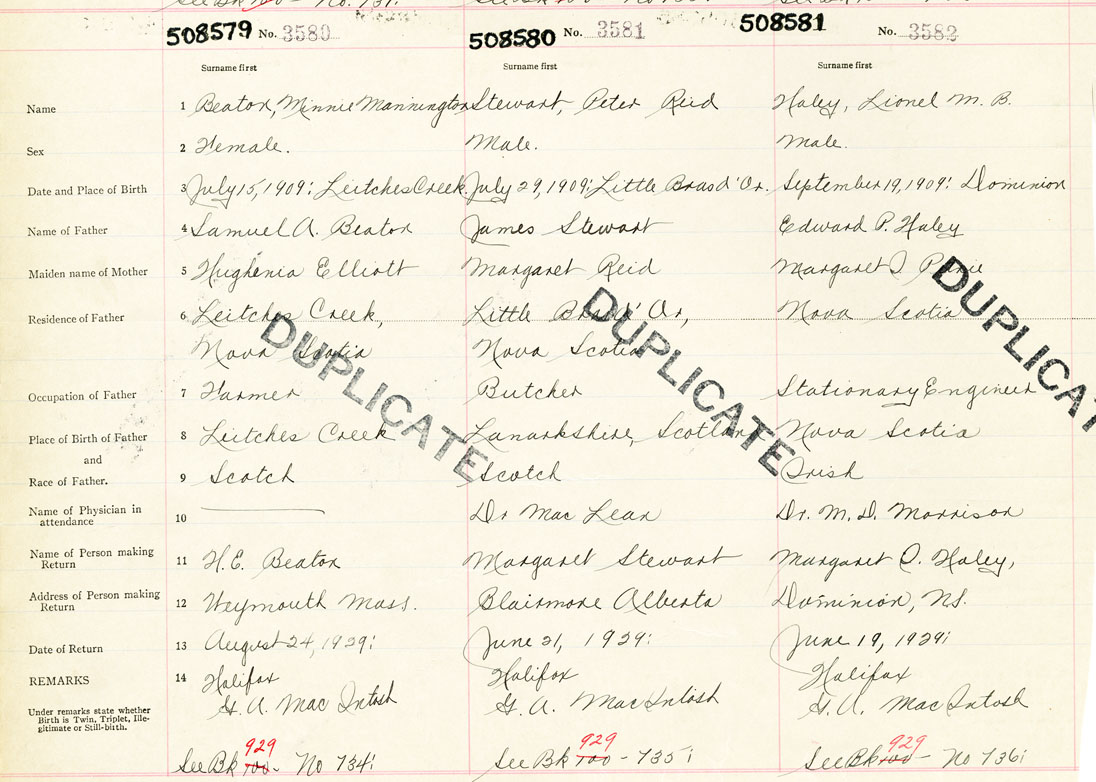 See Bk No. 731.
508579 No. 3580
508580 No. 3581
508581 No. 3582
Surname first Surname first Surname first
Name 1 Beaton, Minnie Mannington Stewart, Peter Reid Haley, Lionel M. B.
Sex 2 Female. Male. Male.
Date and Place of Birth 3 July 15, 1909: Leitches Creek. July 29, 1909: Little Bras d'Or. September 19, 1909: Dominion
Name of Father 4 Samuel A. Beaton James Stewart Edward P. Haley
Maiden name of Mother 5 Hughenia Elliott Margaret Reid Margaret
Residence of Father 6 Leitches Creek, Little Bras d'Or, Nova Scotia
Nova Scotia Nova Scotia
DUPLICATE DUPLICATE
Occupation of Father 7 Farmer Butcher Stationary Engineer
Place of Birth of Father 8 Leitches Creek Lanarkshire, Scotland Nova Scotia
and
Race of Father. 9 Scotch Scotch Irish
Name of Physician in
attendance 10 Dr Mac Lean Dr. M. D. Morrison
Name of Person making
Return 11 H. E. Beaton Margaret Stewart Margaret Haley,
Address of Person making
Return 12 Weymouth Mass. Blairmore Alberta Dominion, N.S.
Date of Return 13 August 24, 1939: June 21, 1939: June 19, 1939:
REMARKS 14 Halifax Halifax Halifax
G. A. MacIntosh G. A. MacIntosh G. A. MacIntosh
Under remarks state whether
Birth is Twin, Triplet, Ille-
gitimate or Still-birth.
929 929 929
See Bk 700 - No 734: See Bk 700 - 735: See Bk 700 - No 736: